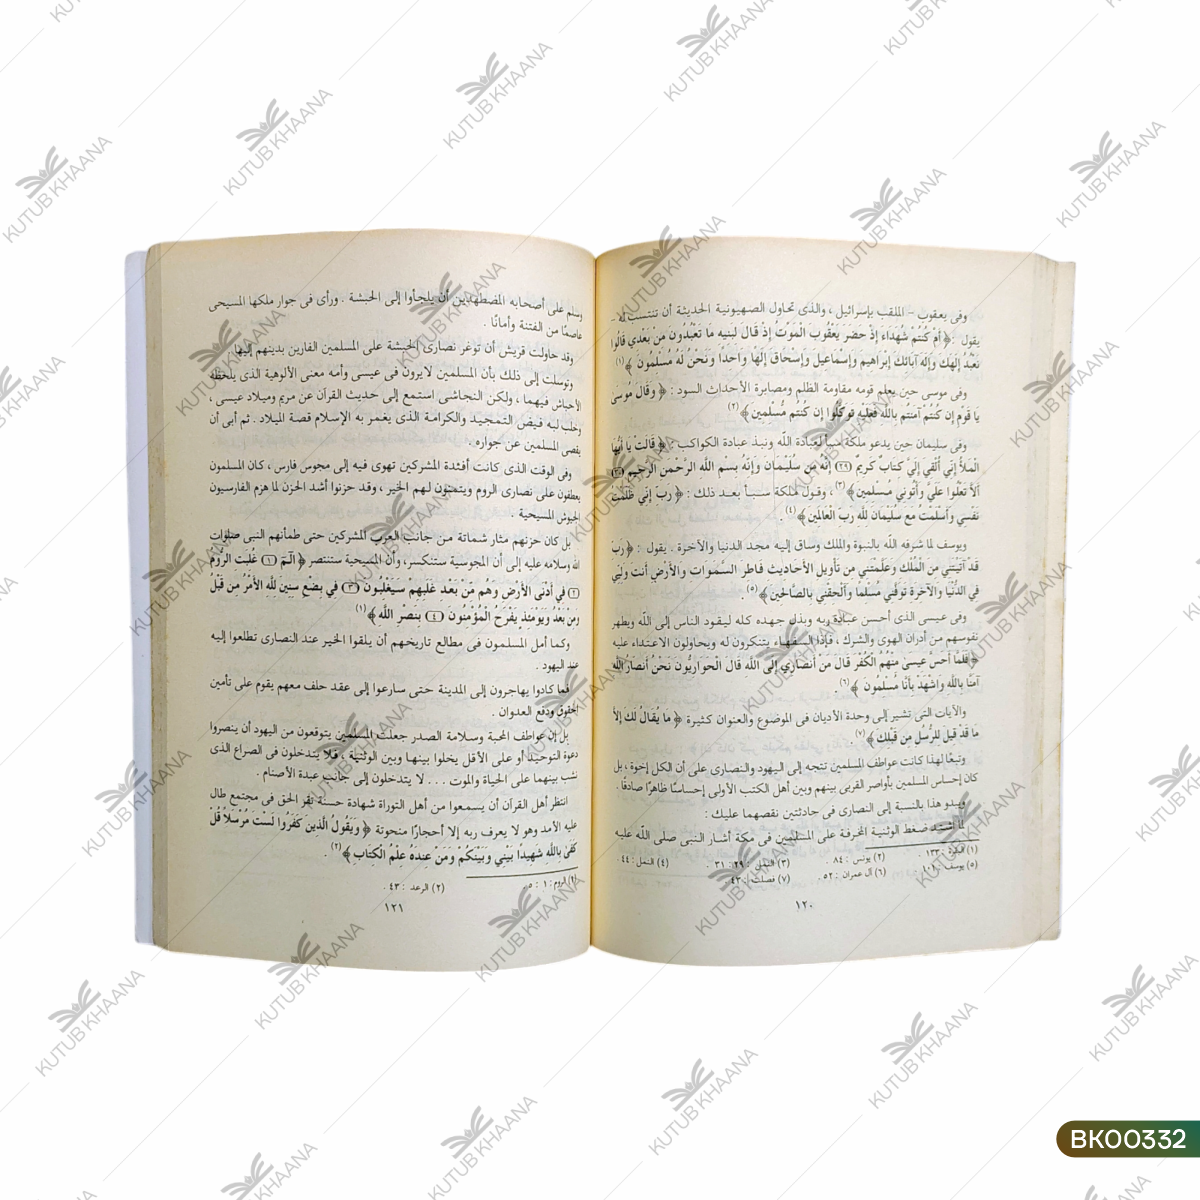 وفى يعقوب – الملقب بإسرائيل ، والذى تحاول الصهيونية الحديثة أن تنتسب له –
يقول : ﴿ أم كنتم شهداء إذ حضر يعقوب الموت إذ قال لبنيه ما تعبدون من بعدي قالوا
نعبد إلهك وإله آبائك إبراهيم وإسماعيل وإسحاق إلها واحدا ونحن له مسلمون ﴾ (١)
وفى موسى حين يعلم قومه مقاومة الظلم ومصابرة الأحداث السود : ﴿ وقال موسى
يا قوم إن كنتم آمنتم بالله فعليه توكلوا إن كنتم مسلمين ﴾ (٢)
وفى سليمان حين يدعو ملكة سبأ لعبادة الله ونبذ عبادة الكواكب : ﴿ قالت يا أيها
الملأ إني ألقي إلي كتاب كريم (٢٩) إنه من سليمان وإنه بسم الله الرحمن الرحيم (٣٠)
ألا تعلوا علي وأتوني مسلمين ﴾ (٣) ، وقول ملكة سبأ بعد ذلك : ﴿ رب إني ظلمت
نفسي وأسلمت مع سليمان لله رب العالمين ﴾ (٤) .
ويوسف لما شرفه الله بالنبوة والملك وساق إليه مجد الدنيا والآخرة . يقول : ﴿ رب
قد آتيتني من الملك وعلمتني من تأويل الأحاديث فاطر السموات والأرض أنت وليي
في الدنيا والآخرة توفني مسلما وألحقني بالصالحين ﴾ (٥) .
وفى عيسى الذى أحسن عبادة ربه وبذل جهده كله ليقود الناس إلى الله ويطهر
نفوسهم من أدران الهوى والشرك ، فإذا السفهاء يتنكرون له ويحاولون الاعتداء عليه
﴿ فلما أحس عيسى منهم الكفر قال من أنصاري إلى الله قال الحواريون نحن أنصار الله
آمنا بالله واشهد بأنا مسلمون ﴾ (٦)
والآيات التى تشير إلى وحدة الأديان فى الموضوع والعنوان كثيرة ﴿ ما يقال لك إلا
ما قد قيل للرسل من قبلك ﴾ (٧) .
وتبعًا لهذا كانت عواطف المسلمين تتجه إلى اليهود والنصارى على أن الكل إخوة ، بل
كان إحساس المسلمين بأواصر القربى بينهم وبين أهل الكتب الأولى إحساسًا ظاهرًا صادقًا .
ويبدو هذا بالنسة إلى النصارى فى حادثتين نقصهما عليك :
لما اشتد ضغط الوثنية المحرفة على المسلمين فى مكة أشار النبى صلى الله عليه
(١) البقرة : ١٣٣ . (٢) يونس : ٨٤ . (٣) النمل : ٢٩ : ٣١ . (٤) النمل : ٤٤
(٥) يوسف : ١٠١ . (٦) آل عمران : ٥٢ . (٧) فصلت : ٤٣
١٢٠
وسلم على أصحابه المضطهدين أن يلجأوا إلى الحبشة . ورأى فى جوار ملكها المسيحى
عاصمًا من الفتنة وأمانًا .
وقد حاولت قريش أن توغر نصارى الحبشة على المسلمين الفارين بدينهم إليها
وتوسلت إلى ذلك بأن المسلمين لا يرون فى عيسى وأمه معنى الألوهية الذى يلحظه
الأحباش فيهما ، ولكن النجاشى استمع إلى حديث القرآن عن مريم وميلاد عيسى ،
وخلب لبه فيض التمجيد والكرامة الذى يغمر به الإسلام قصة الميلاد . ثم أبى أن
يقصى المسلمين عن جواره .
وفى الوقت الذى كانت أفئدة المشركين تهوى فيه إلى مجوس فارس ، كان المسلمون
يعطفون على نصارى الروم ويتمنون لهم الخير ، وقد حزنوا أشد الحزن لما هزم الفارسيون
الجيوش المسيحية .
بل كان حزنهم مثار شماتة من جانب العرب المشركين حتى طمأنهم النبى صلوات
الله وسلامه عليه إلى أن المجوسية ستنكسر، وأن المسيحية ستنتصر ﴿ الٓمٓ (١) غلبت الروم
(٢) في أدنى الأرض وهم من بعد غلبهم سيغلبون (٣) في بضع سنين لله الأمر من قبل
ومن بعد ويومئذ يفرح المؤمنون (٤) بنصر الله ﴾ (١)
وكما أمل المسلمون فى مطالع تاريخهم أن يلقوا الخير عند النصارى تطلعوا إليه
عند اليهود .
فما كادوا يهاجرون إلى المدينة حتى سارعوا إلى عقد حلف معهم يقوم على تأمين
الحقوق ودفع العدوان .
بل إن عواطف المحبة وسلامة الصدر جعلت المسلمين يتوقعون من اليهود أن ينصروا
دعوة التوحيد أو على الأقل يخلوا بينها وبين الوثنية ، فلا يتدخلون فى الصراع الذى
نشب بينهما على الحياة والموت . . . لا يتدخلان إلى جانب عبدة الأصنام .
انتظر أهل القرآن أن يسمعوا من أهل التوراة شهادة حسنة تقر الحق فى مجتمع طال
عليه الأمد وهو لا يعرف ربه إلا أحجارًا منحوتة ﴿ ويقول الذين كفروا لست مرسلا قل
كفى بالله شهيدا بيني وبينكم ومن عنده علم الكتاب ﴾ (٢) .
(١) الروم : ١ : ٥ . (٢) الرعد : ٤٣ .
١٢١
KUTUB KHAANA
BK00332